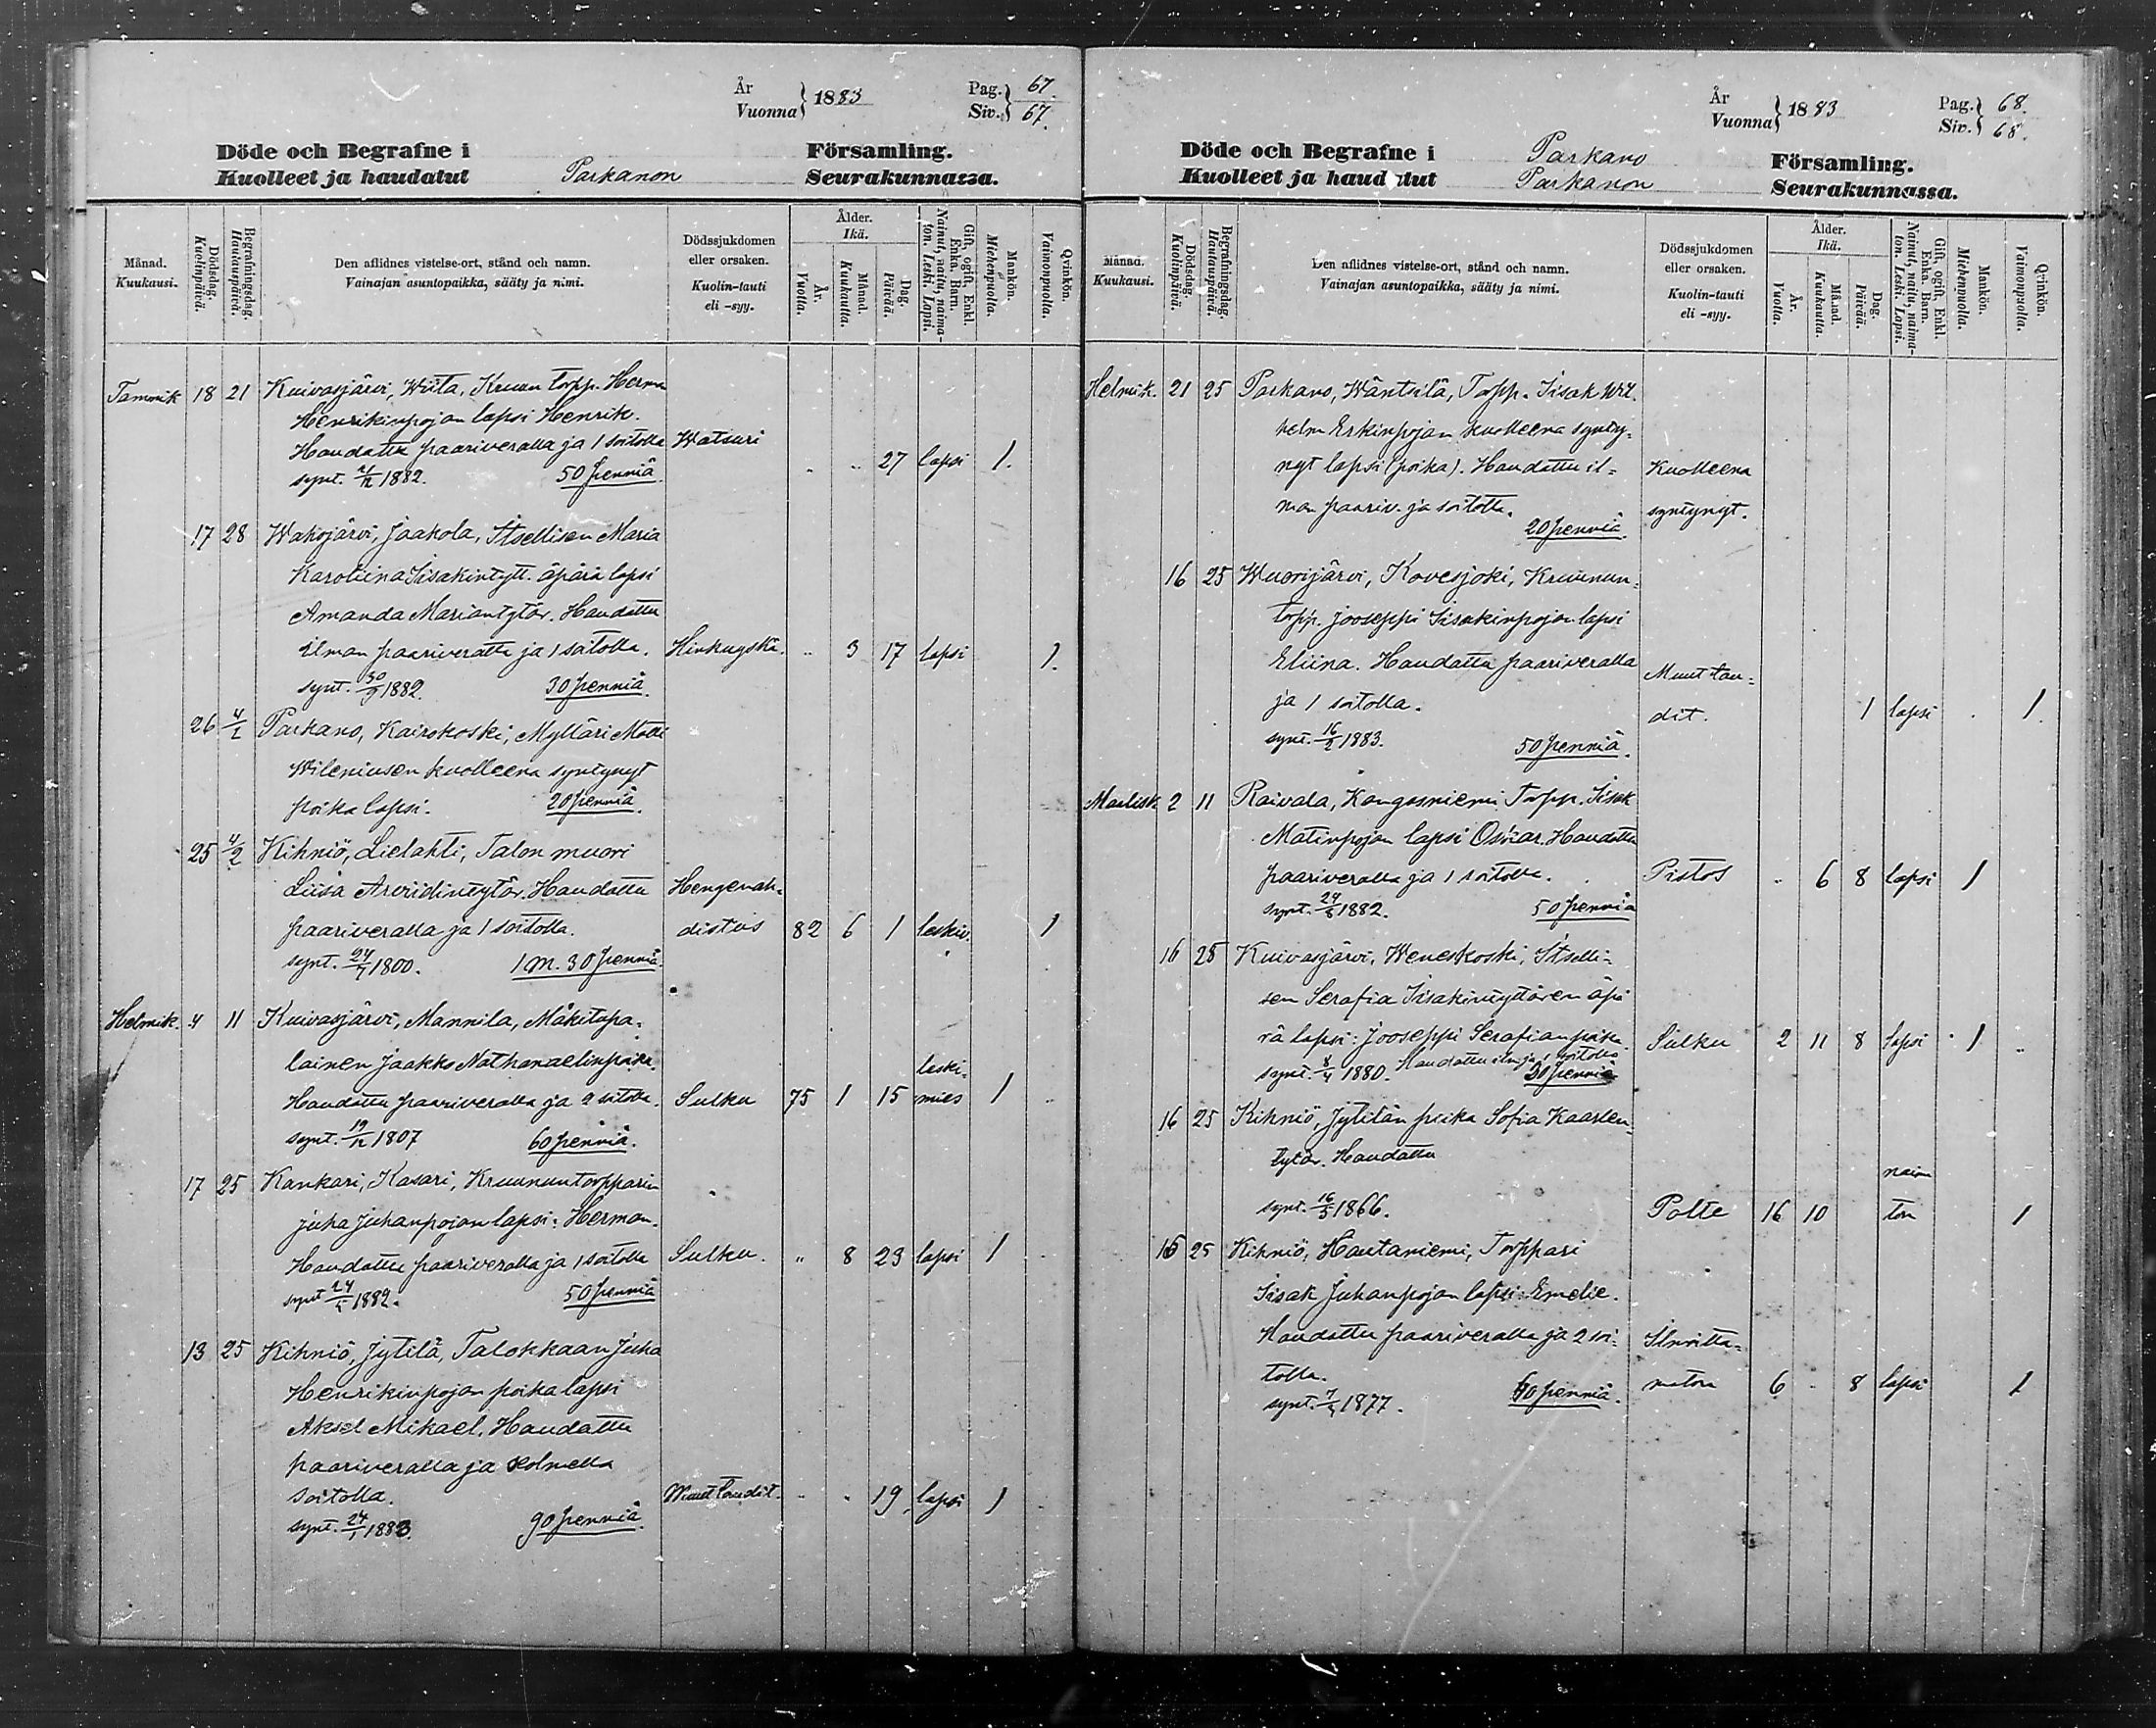 År
Vuonna } 1883
Pag. } 67.
Siv. } 67.
Döde och Begrafne i Församling.
Kuolleet ja haudatut Parkanon Seurakunnassa.
Månad. Kuukausi.
Dödsdag. Kuolinpäivä.
Begrafningsdag. Hautauspäivä.
Den aflidnes vistelse-ort, stånd och namn.
Vainajan asuntopaikka, sääty ja nimi.
Dödssjukdomen eller orsaken.
Kuolin-tauti eli -syy.
Ålder. Ikä.
År. Vuotta.
Månad. Kuukautta.
Dag. Päivää.
Gift, ogift, Enkl. Enka. Barn.
Nainut, naitu, naimaton. Leski. Lapsi.
Mankön. Miehenpuolta.
Qvinkön. Vaimonpuolta.
Tammik 18 21 Kuivasjärvi, Wiita, Kruun torpp. Herm
Henrikinpojan lapsi Henrik.
Haudattu paariveralla ja 1 soitolla Watsuri 27 lapsi 1.
synt. 21/12 1882. 50 penniä.
17 28 Wahojärvi, Jaakola, Itsellisen Maria
Karoliina Iisakintytt. äpärä lapsi
Amanda Mariantytär. Haudattu
ilman paariveratta ja 1 soitolla. Hinkuyskä. 3 17 lapsi 1.
synt. 30/9 1882. 30 penniä.
26 4/2 Parkano, Kairokoski, Mylläri Matti
Wileniusen kuolleena syntynyt
poika lapsi. 20 penniä.
25 4/2 Kihniö, Lielahti, Talon muori
Liisa Arvidintytär. Haudattu Hengenah-
paariveralla ja 1 soitolla. distus 82 6 1 leskiv. 1
synt. 24/7 1800. 1 m. 30 penniä.
Helmik. 4 11 Kuivasjärvi, Mannila, Mäkitupa-
lainen Jaakko Nathanaelinpoika. leski-
Haudattu paariveralla ja 2 soitolla. Sulku 75 1 15 mies 1
synt. 19/12 1807 60 penniä.
17 25 Kankari, Kasari, Kruununtorpparin
Juha Juhanpojan lapsi: Herman.
Haudattu paariveralla ja 1 soitolla Sulku. " 8 23 lapsi 1
synt 24/5 1882. 50 penniä
13 25 Kihniö, Jytilä, Talokkaan Juha
Henrikinpojan poika lapsi
Aksel Mikael. Haudattu
paariveralla ja kolmella
soitolla. Muut taudit. 19 lapsi 1
synt. 24/1 1883. 90 penniä.
År
Vuonna } 1883
Pag. } 68.
Siv. } 68.
Döde och Begrafne i Parkano Församling.
Kuolleet ja haudatut Parkanon Seurakunnassa.
Månad. Kuukausi.
Dödsdag. Kuolinpäivä.
Begrafningsdag. Hautauspäivä.
Den aflidnes vistelse-ort, stånd och namn.
Vainajan asuntopaikka, sääty ja nimi.
Dödssjukdomen eller orsaken.
Kuolin-tauti eli -syy.
Ålder. Ikä.
År. Vuotta.
Månad. Kuukautta.
Dag. Päivää.
Gift, ogift, Enkl. Enka. Barn.
Nainut, naitu, naimaton. Leski. Lapsi.
Mankön. Miehenpuolta.
Qvinkön. Vaimonpuolta.
Helmik. 21 25 Parkano, Wäntsilä, Torpp. Iisak Wil-
helm Erkinpojan kuolleena synty-
nyt lapsi (poika). Haudattu il- Kuolleena
man paariv. ja soitotta. syntynyt.
20 penniä.
16 25 Wuorijärvi, Kovesjoki, Kruunun-
torpp. Jooseppi Iisakinpojan lapsi
Eliina. Haudattu paariveralla Muut tau-
ja 1 soitolla. dit. 1 lapsi 1.
synt. 16/2 1883. 50 penniä.
Maalisk 2 11 Raivala, Kangasniemi Torpp. Iisak
Matinpojan lapsi Oskar. Haudattu
paariveralla ja 1 soitolla. Pistos 6 8 lapsi 1
synt. 24/8 1882. 50 penniä
16 25 Kuivasjärvi, Weneskoski, Itselli-
sen Serafia Iisakintyttären äpä
rä lapsi: Jooseppi Serafianpoika. Sulku 2 11 8 lapsi 1
synt. 8/4 1880. Haudattu ilm ja 1 soitolla
30 penniä
16 25 Kihniö, Jytilän piika Sofia Kaarlen-
tytär. Haudattu
naima
synt. 16/5 1866. Polte 16 10 ton 1
15 25 Kihniö, Hautaniemi, Torppari
Iisak Juhanpojan lapsi: Emelie.
Haudattu paariveralla ja 2 soi- Ilmoitta-
tolla. maton 6 8 lapsi 1
synt. 7/3 1877. 60 penniä.